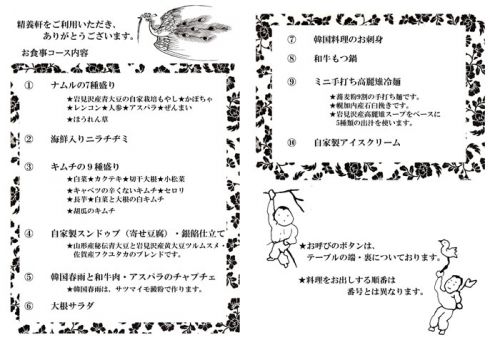 精養軒をご利用いただき、
ありがとうございます。
お食事コース内容
① ナムルの7種盛り
★岩見沢産青大豆の自家栽培もやし★かぼちゃ
★レンコン★人参★アスパラ★ぜんまい
★ほうれん草
② 海鮮入りニラチヂミ
③ キムチの9種盛り
★白菜★カクテキ★切干大根★小松菜
★キャベツの辛くないキムチ★セロリ
★長芋★白菜と大根の白キムチ
★胡瓜のキムチ
④ 自家製スンドゥブ（寄せ豆腐）・銀餡仕立て
★山形産秘伝青大豆と岩見沢産黄大豆ツルムスメ・
佐賀産フクユタカのブレンドです。
⑤ 韓国春雨と和牛肉・アスパラのチャプチェ
★韓国春雨は、サツマイモ澱粉で作ります。
⑥ 大根サラダ
⑦ 韓国料理のお刺身
⑧ 和牛もつ鍋
⑨ ミニ手打ち高麗雉冷麺
★蕎麦粉9割の手打ち麺です。
★幌加内産石臼挽きです。
★岩見沢産高麗雉スープをベースに
5種類の出汁を使います。
⑩ 自家製アイスクリーム
★お呼びのボタンは、
テーブルの端・裏についております。
★料理をお出しする順番は
番号とは異なります。